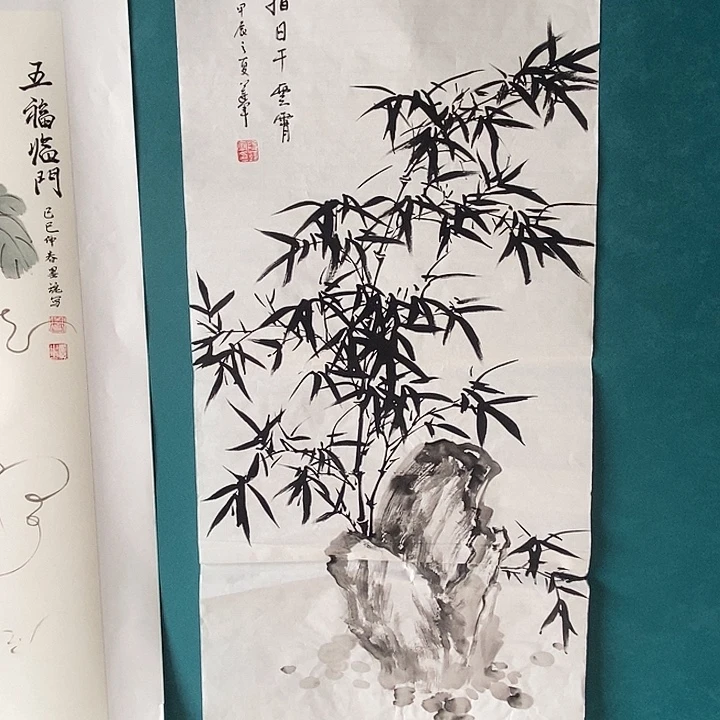 指日干雲霄
甲辰之夏
五福临門
己巳仲春墨魂写